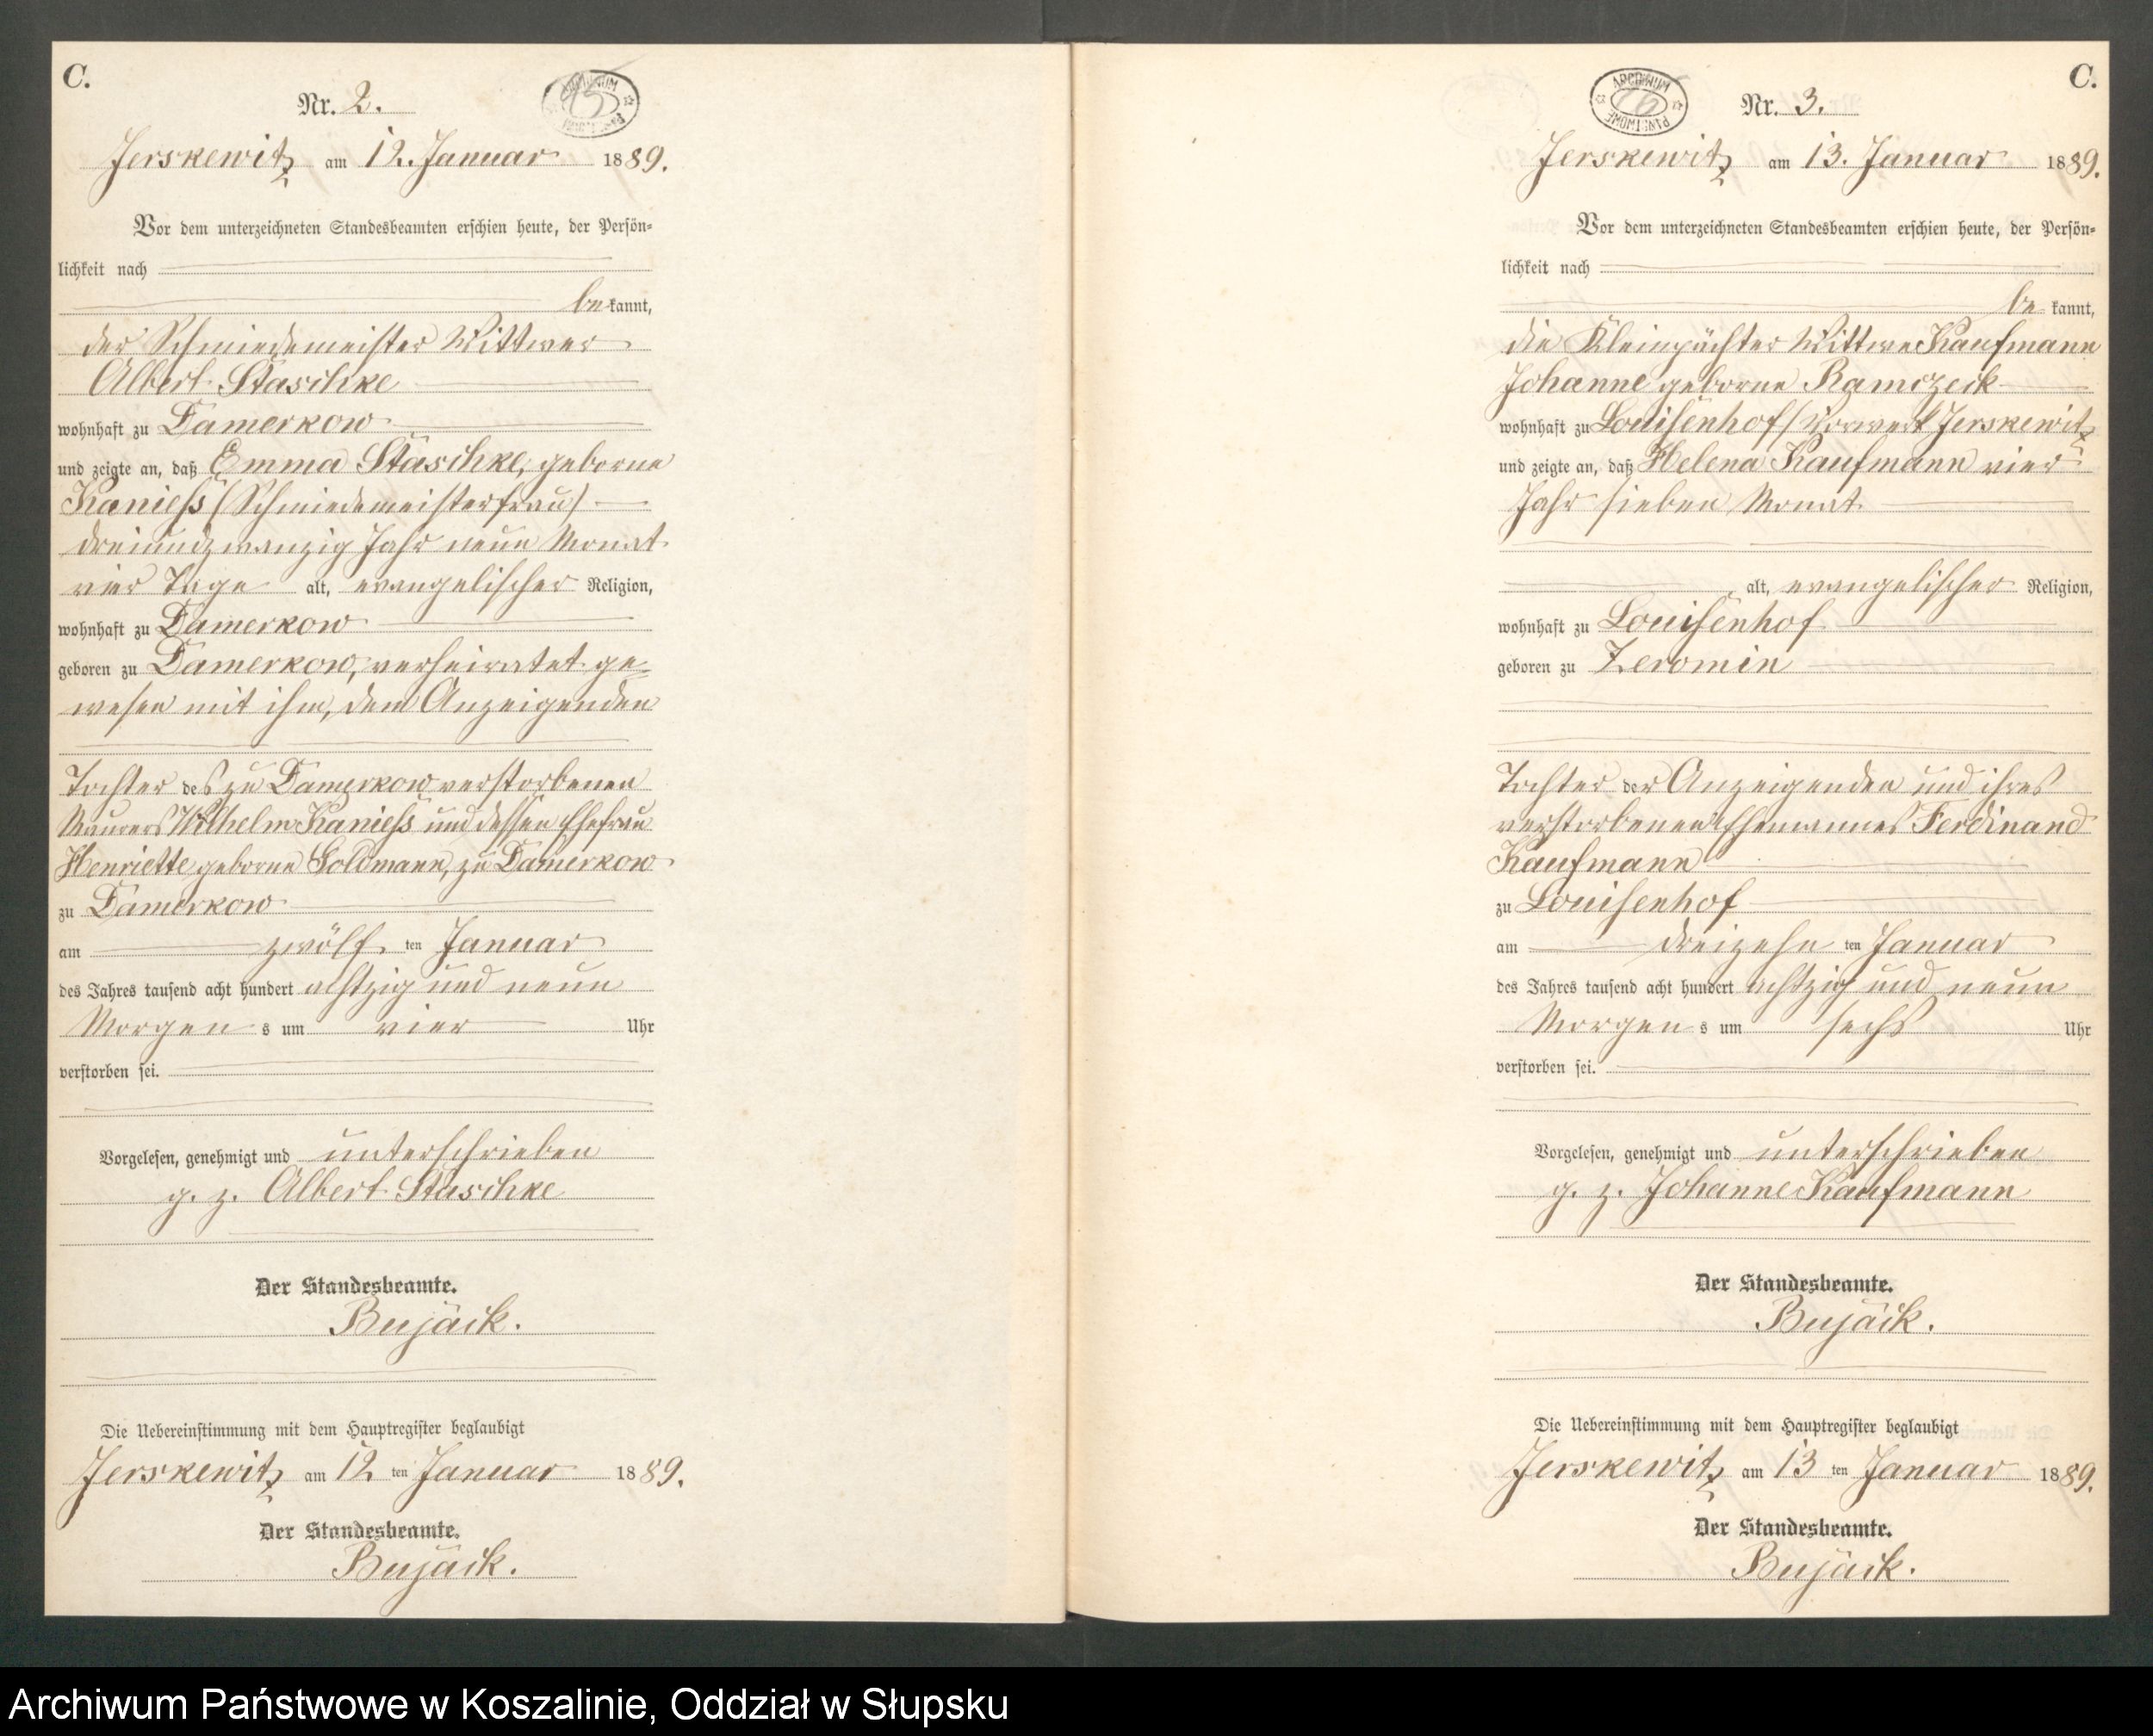 C.
Nr. 2.
ARCHIWUM PAŃSTWOWE
Jerskewitz am 12. Januar 1889.
Vor dem unterzeichneten Standesbeamten erschien heute, der Persön-
lichkeit nach
be kannt,
der Schmiedemeister Wittwer
Albert Staschke
wohnhaft zu Damerkow
und zeigte an, daß Emma Staschke, geborne
Kaniess (Schmiedemeisterfrau)
dreiundzwanzig Jahr neun Monat
vier Tage alt, evangelischer Religion,
wohnhaft zu Damerkow
geboren zu Damerkow, verheiratet ge-
wesen mit ihm, dem Anzeigenden
Tochter des zu Damerkow verstorbenen
Maurers Wilhelm Kaniess und dessen Ehefrau
Henriette geborne Goldmann, zu Damerkow
zu Damerkow
am zwölf ten Januar
des Jahres tausend acht hundert achtzig und neun
Morgen s um vier Uhr
verstorben sei.
Vorgelesen, genehmigt und unterschrieben
g. z. Albert Staschke
Der Standesbeamte.
Bujäck.
Die Uebereinstimmung mit dem Hauptregister beglaubigt
Jerskewitz am 12 ten Januar 1889.
Der Standesbeamte.
Bujäck.
C.
Nr. 3.
ARCHIWUM PAŃSTWOWE
Jerskewitz am 13. Januar 1889.
Vor dem unterzeichneten Standesbeamten erschien heute, der Persön-
lichkeit nach
be kannt,
die Kleinpächter Wittwe Kaufmann
Johanne geborne Ramczeck
wohnhaft zu Louisenhof (Vorwerk Jerskewitz
und zeigte an, daß Helena Kaufmann vier
Jahr sieben Monat
alt, evangelischer Religion,
wohnhaft zu Louisenhof
geboren zu Zeromin
Tochter der Anzeigenden und ihres
verstorbenen Ehemannes Ferdinand
Kaufmann
zu Louisenhof
am dreizehn ten Januar
des Jahres tausend acht hundert achtzig und neun
Morgen s um sechs Uhr
verstorben sei.
Vorgelesen, genehmigt und unterschrieben
g. z. Johanne Kaufmann
Der Standesbeamte.
Bujäck.
Die Uebereinstimmung mit dem Hauptregister beglaubigt
Jerskewitz am 13 ten Januar 1889.
Der Standesbeamte.
Bujäck.
Archiwum Państwowe w Koszalinie, Oddział w Słupsku